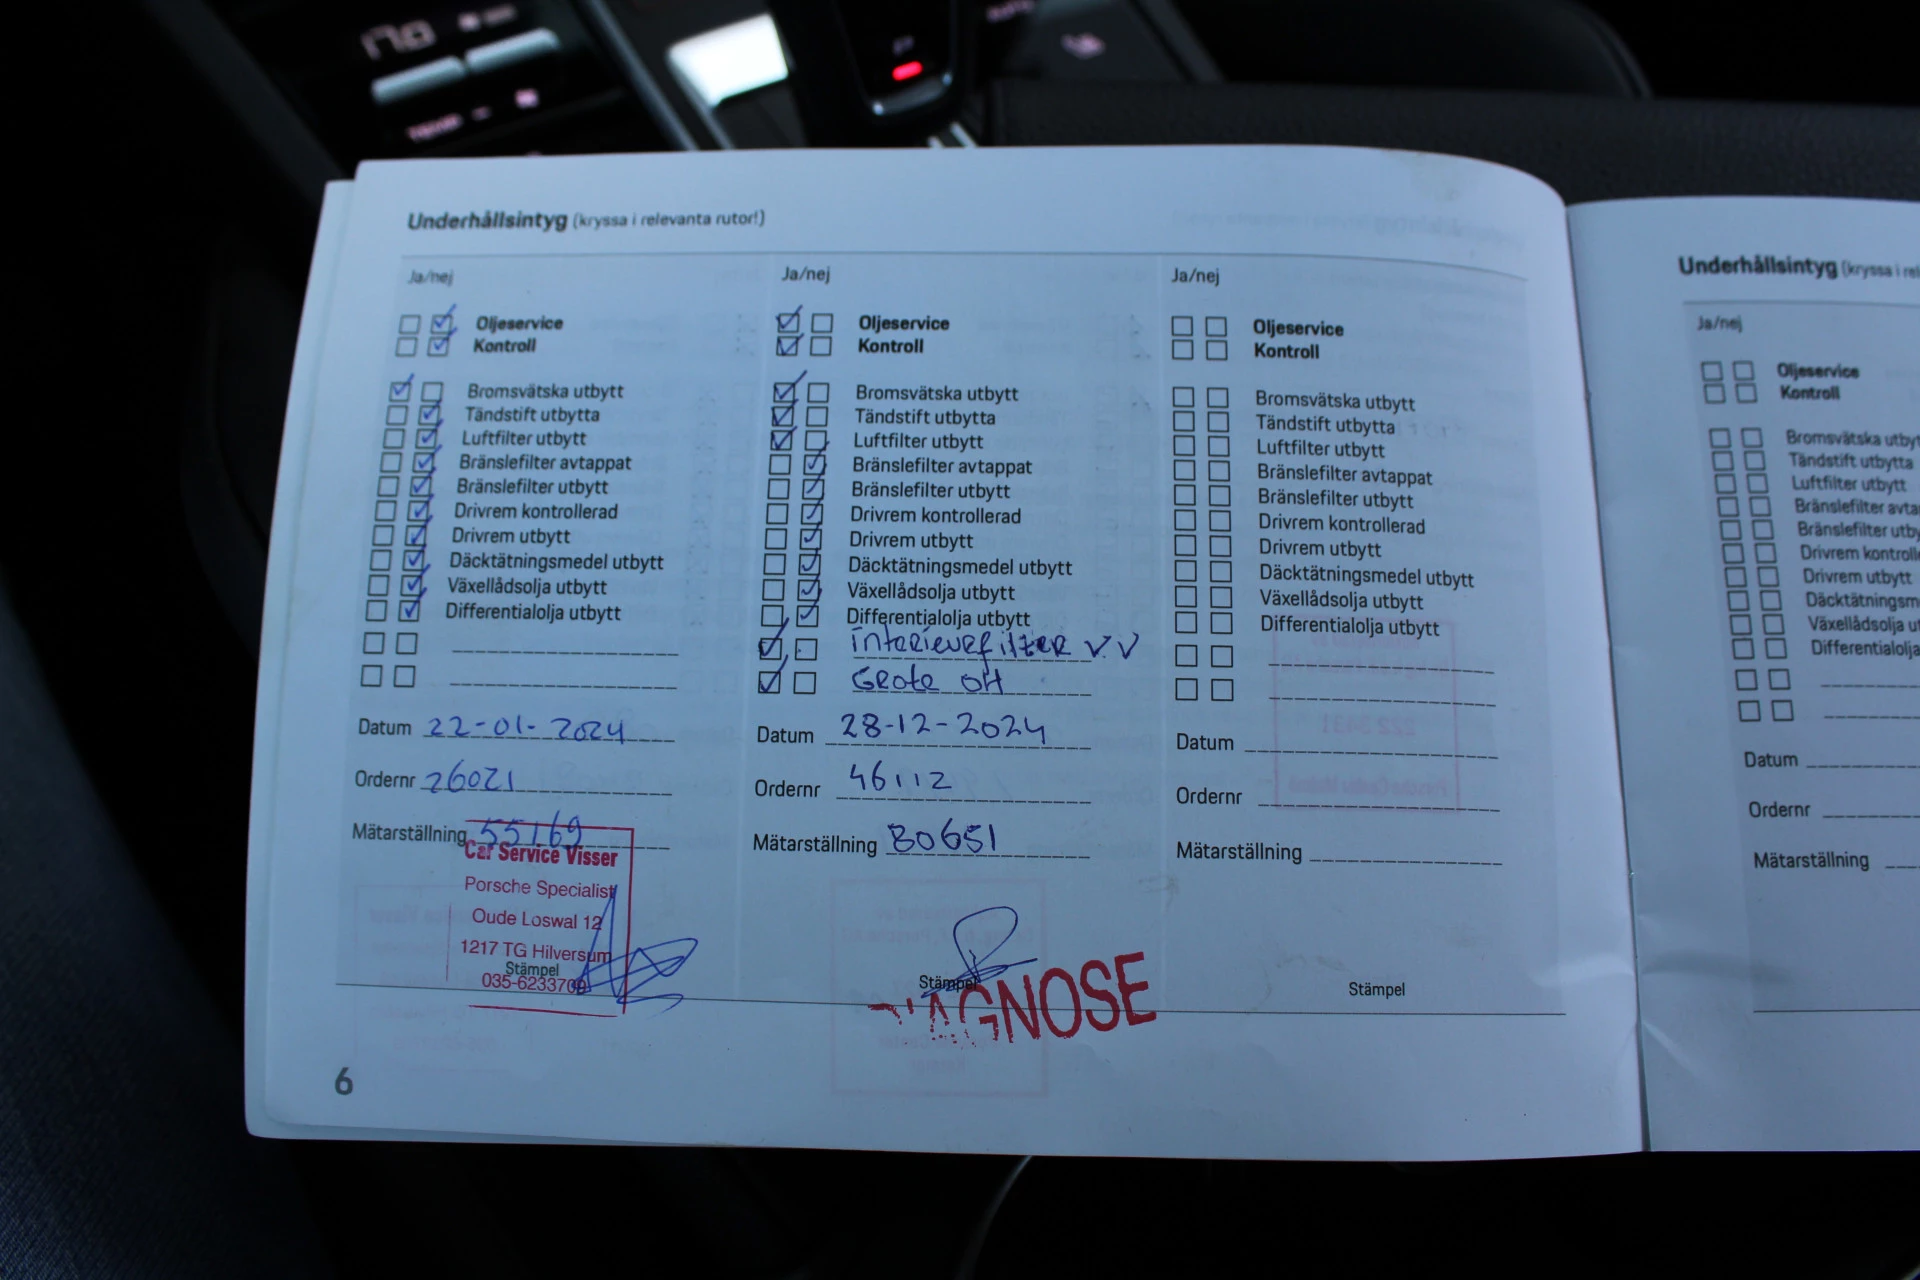 Underhållsintyg (kryssa i relevanta rutor!)
Ja/nej
Oljeservice
Kontroll
Bromsvätska utbytt
Tändstift utbytta
Luftfilter utbytt
Bränslefilter avtappat
Bränslefilter utbytt
Drivrem kontrollerad
Drivrem utbytt
Däcktätningsmedel utbytt
Växellådsolja utbytt
Differentialolja utbytt
Datum 22-01-2024
Ordernr 26021
Mätarställning 55169
Car Service Visser
Porsche Specialist
Oude Loswal 12
1217 TG Hilversum
Stämpel
Ja/nej
Oljeservice
Kontroll
Bromsvätska utbytt
Tändstift utbytta
Luftfilter utbytt
Bränslefilter avtappat
Bränslefilter utbytt
Drivrem kontrollerad
Drivrem utbytt
Däcktätningsmedel utbytt
Växellådsolja utbytt
Differentialolja utbytt
interieurfilter V.V
Grote OH
Datum 28-12-2024
Ordernr 46112
Mätarställning 80651
Stämpel
DIAGNOSE
Ja/nej
Oljeservice
Kontroll
Bromsvätska utbytt
Tändstift utbytta
Luftfilter utbytt
Bränslefilter avtappat
Bränslefilter utbytt
Drivrem kontrollerad
Drivrem utbytt
Däcktätningsmedel utbytt
Växellådsolja utbytt
Differentialolja utbytt
Datum
Ordernr
Mätarställning
Stämpel
6
Underhållsintyg (kryssa i rel
Ja/nej
Oljeservice
Kontroll
Bromsvätska utbyt
Tändstift utbytta
Luftfilter utbytt
Bränslefilter avta
Bränslefilter utby
Drivrem kontrolle
Drivrem utbytt
Däcktätningsm
Växellådsolja u
Differentialolja
Datum
Ordernr
Mätarställning